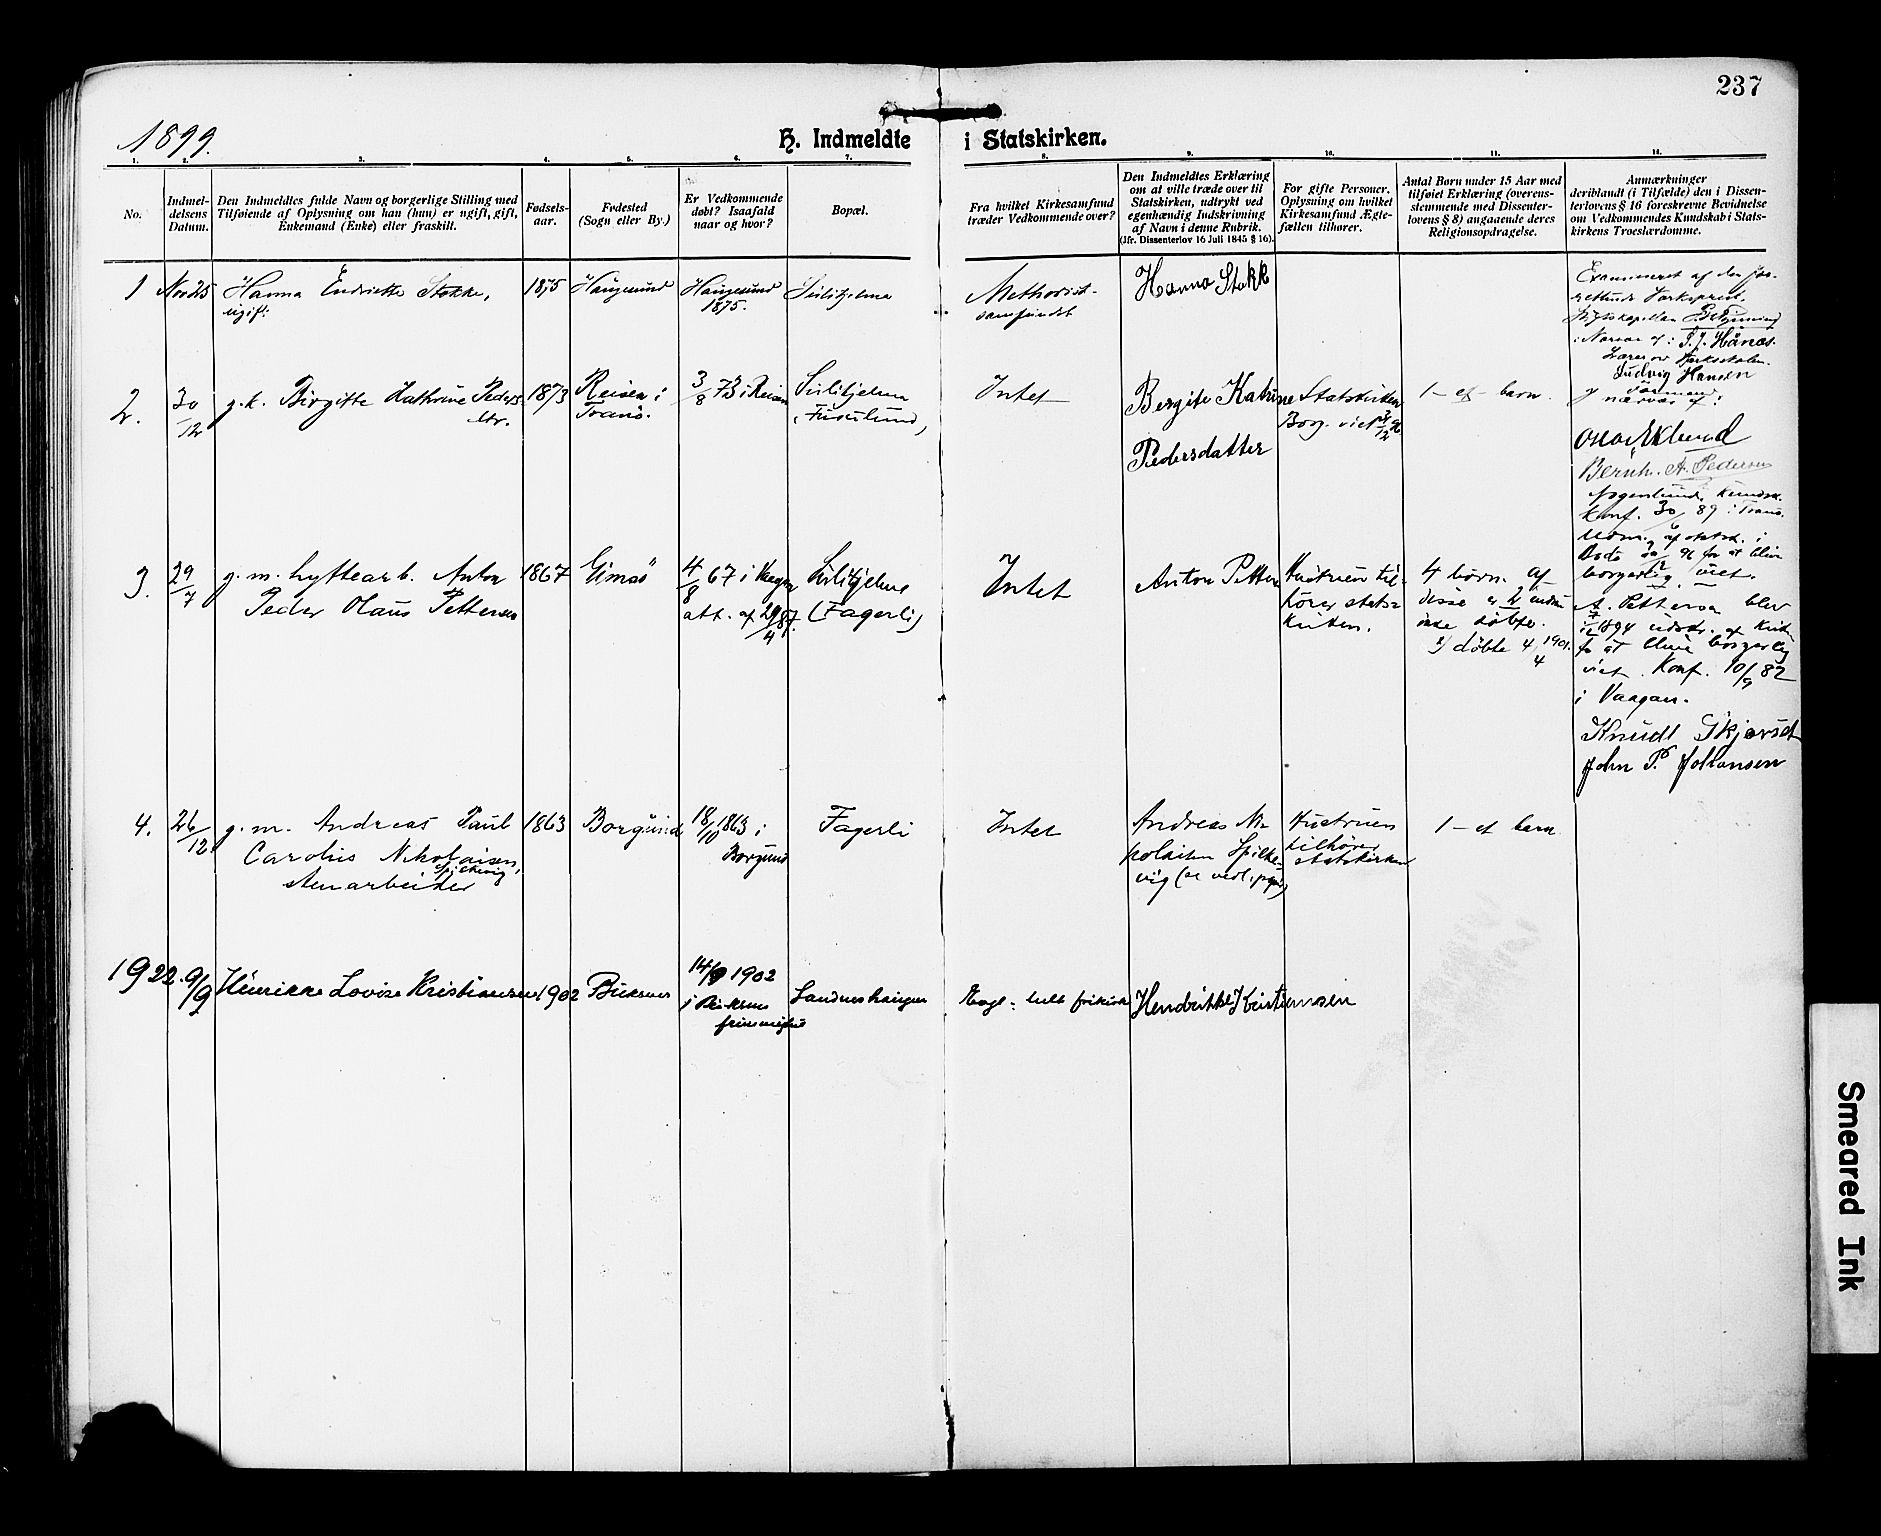 237
1899.
H. Indmeldte i Statskirken.
1. 2. 3. 4. 5. 6. 7. 8. 9. 10. 11. 14.
No.
Indmel-
delsens
Datum.
Den Indmeldtes fulde Navn og borgerlige Stilling med
Tilføiende af Oplysning om han (hun) er ugift, gift,
Enkemand (Enke) eller fraskilt.
Fødsels-
aar.
Fødested
(Sogn eller By.)
Er Vedkommende
døbt? Isaafald
naar og hvor?
Bopæl.
Fra hvilket Kirkesamfund
træder Vedkommende over?
Den Indmeldtes Erklæring
om at ville træde over til
Statskirken, udtrykt ved
egenhændig Indskrivning
af Navn i denne Rubrik.
(Jfr. Dissenterlov 16 Juli 1845 § 16).
For gifte Personer.
Oplysning om hvilket
Kirkesamfund Ægte-
fællen tilhører.
Antal Børn under 15 Aar med
tilføiet Erklæring (overens-
stemmende med Dissenter-
lovens § 8) angaaende deres
Religionsopdragelse.
Anmærkninger
deriblandt (i Tilfælde) den i Dissen-
terlovens § 16 foreskrevne Bevidnelse
om Vedkommendes Kundskab i Stats-
kirkens Troeslærdomme.
1
Hanna Endriette Stokke,
ugift
1875
Haugesund
Haugesund
1875.
Sulitjelma
Methodist-
samfundet
Hanna Stokk
Examineret af den
S. J. Hånæs.
Lærer ov Værkskolen.
Ludvig Hansen
2.
30/12
g.k. Birgitte Kathrine Peders-
dtr.
1873
Reisen i
Tromsö.
3/8 73 i Reisen
Sulitjelma
(Furulund)
Intet
Bergite Katrine
Pedersdatter
Statskirken
Borg. viet
1 - et - barn.
nærvær af:
Bernh. A. Pedersen
konf. 30/ 89 i Tromsö.
for at blive
borgerlig viet.
3.
29/7
g. m. hyttearb. Anton
Peder Olaus Pettersen
1867
Gimsö
4/8 67 i Vaagan
att. af 29/4 87.
Sulitjelma
(Fagerli)
Intet
Anton Petter
Hustruen til-
hører stats-
kirken.
4 børn. Af
disse er 2 endnu
ikke døbte.
2) døbte 4/4 1901.
A. Pettersen blev
7/12 1894 udstr. af Kirken
for at blive borgerlig
viet. Konf. 10/9 82
i Vaagan.
Knudt Skjørset
John P. Johansen
4.
26/12
g. m. Andreas Paul
Carolus Nikolaisen,
Spilkevig
stenarbeider
1863
Borgund
18/10 1863 i
Borgund
Fagerli
Intet
Andreas Ni-
kolaisen Spilke-
vig
Hustruen
tilhører
statskirken
1 - et barn
1922.
9/9
Henrikke Lovise Kristiansen
1902
Buksnes
14/9 1902
i Buksnes
frimenighed
Sandneshaugen
Evgl. luth frikirke
Hendrikke Kristiansen
Smeared Ink